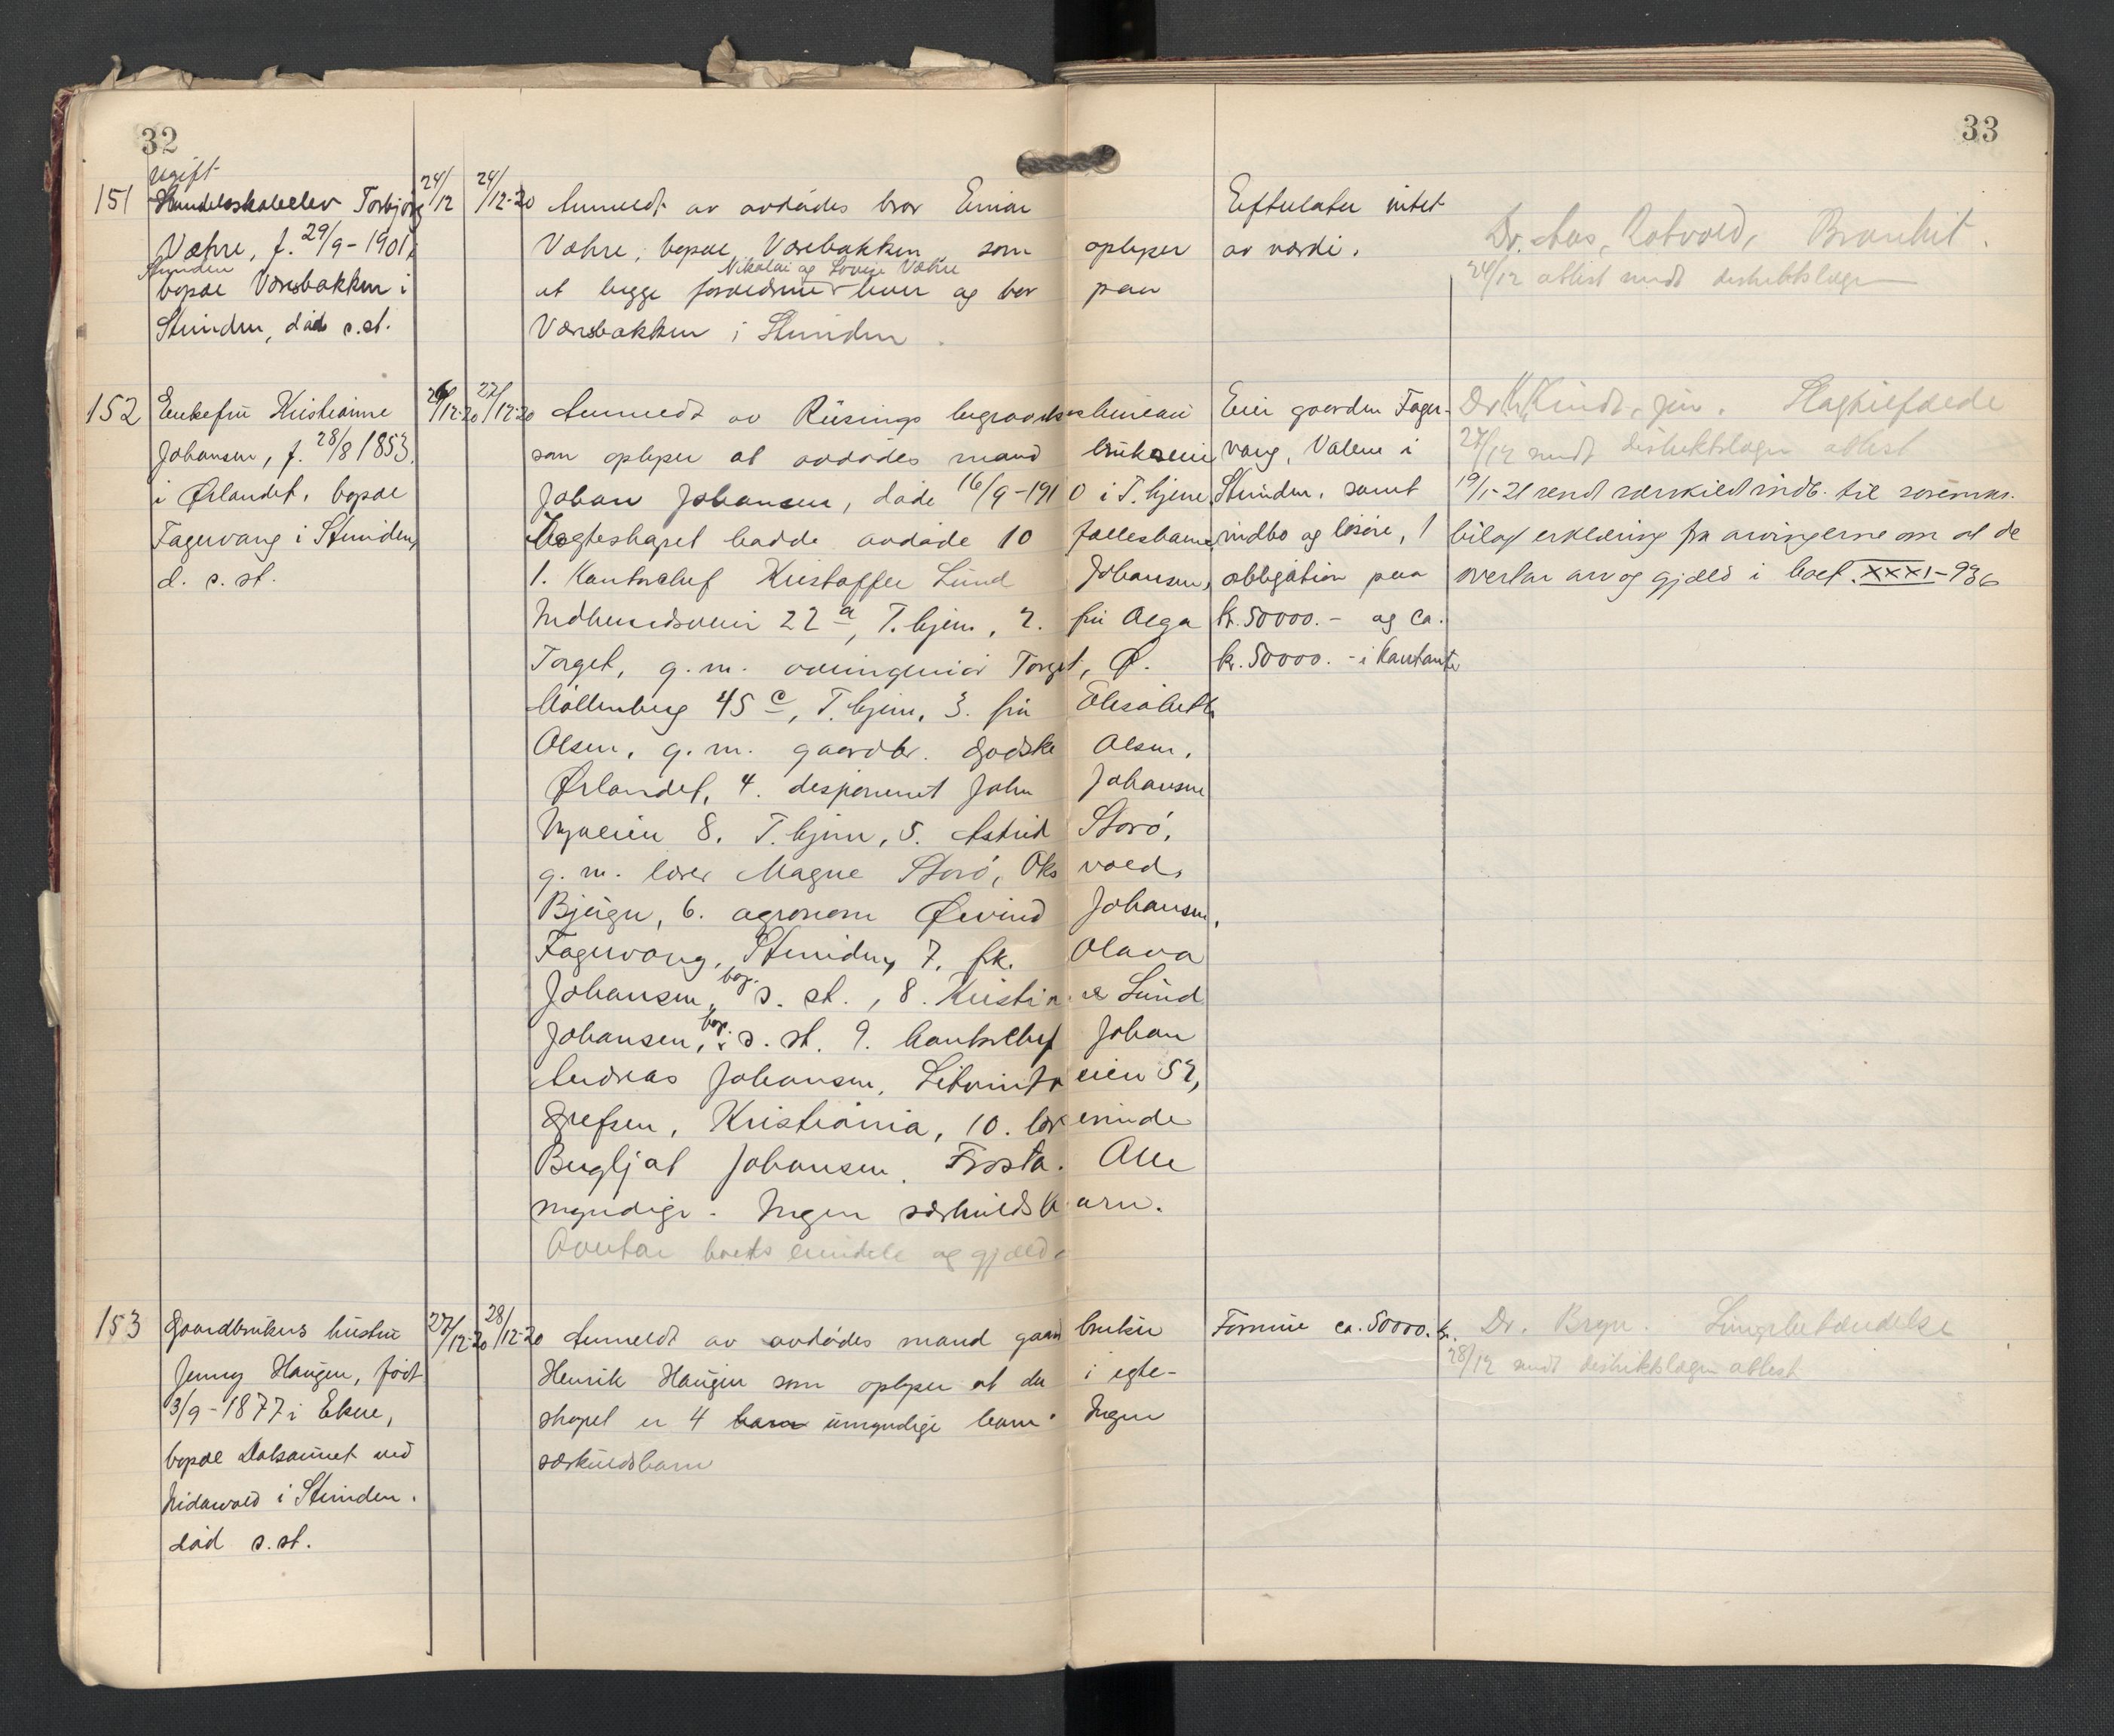 32
33
151
ugift
Handelsskoleelev Torbjörg
Væhre, f. 29/9-1901,
Strinden
bopæl Væresbakken i
Strinden, død s. st.
24/12
24/12-20
Anmeldt av avdødes bror Einar
Væhre, bopæl Væresbakken, som oplyser
Nikolai og Lovise Væhre
at begge forældrene lever og bor paa
Væresbakken i Strinden.
Efterlater intet
av værdi.
Dr. Aas, Rotvold, Bronkit.
24/12 attest sendt distriktslægen
152
Enkefru Kristianne
Johansen, f. 28/8 1853
i Ørlandet, bopæl
Fagervang i Strinden,
d. s. st.
26/12-20
27/12-20
Anmeldt av Riisings begravelsesbureau
som oplyser at avdødes mand brukseier
Johan Johansen, døde 16/9-1910 i T.hjem.
I egteskapet hadde avdøde 10 fællesbarn,
1. Kontorchef Kristoffer Lund Johansen,
Indherredsveien 22 a, T.hjem, 2. fru Olga
Torget, g. m. overingeniør Torget, Ø.
Møllenberg 45 c, T.hjem, 3. fru Elisabeth
Olsen, g. m. gaardbr. Godske Olsen,
Ørlandet, 4. disponent John Johansen
Nyveien 8. T.hjem, 5. Astrid Storø,
g. m. lærer Magne Storø, Oksvold,
Bjugn, 6. agronom Øivind Johansen,
Fagervang, Strinden, 7. frk. Olava
Johansen, bop. s. st., 8. Kristine Lund
Johansen, bop. s. st. 9. kontorchef Johan
Andreas Johansen, 52,
Grefsen, Kristiania, 10. lærerinde
Bergljot Johansen, Frosta. Alle
myndige. Ingen særkuldsbarn.
Overtar boets eiendele og gjæld.
Eier gaarden Fager-
vang, Valene i
Strinden, samt
indbo og løsøre, 1
obligation paa
kr. 50000.- og ca.
kr. 50000.- i kontanter
Dr. K. Kindt, jun. Slagtilfælde
27/12 sendt distriktslægen attest
19/1-21 sendt særskilt indb. til sorenskr.
bilag erklæring fra arvingerne om at de
overtar arv og gjæld i boet. XXXI-936
153
Gaardbrukers hustru
Jenny Haugen, født
3/9-1877 i Ekne,
bopæl Dalsaunet ved
Nidarvold i Strinden.
død s. st.
27/12-20
28/12-20
Anmeldt av avdødes mand gaardbruker
Henrik Haugen som oplyser at der i egte-
skapet er 4 barn umyndige barn. Ingen
særkuldsbarn
Formue ca. 50000. kr.
Dr. Bryn. Lungebetændelse
28/12 sendt distriktslægen attest